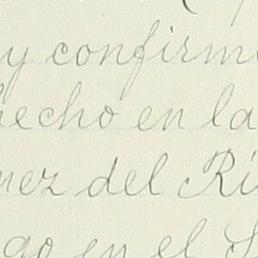 y confirm
echo en la
nez del Rí
go en el S